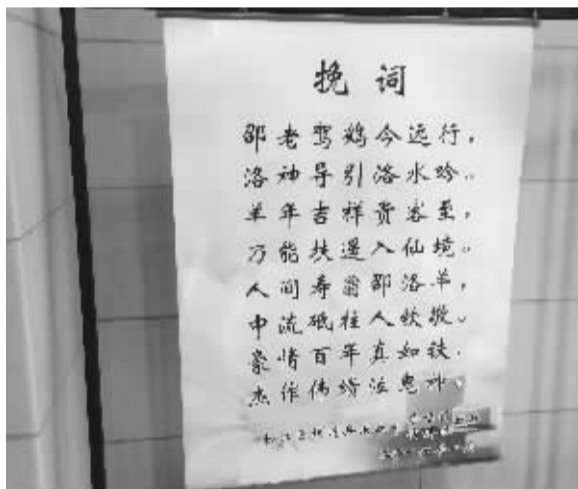 挽词
邵老鸾鹤今远行，
洛神导引洛水吟。
羊年吉祥贵客至，
万能扶遥入仙境。
人间寿翁邵洛羊，
中流砥柱人钦敬。
豪情百年真如铁，
杰作伟绩泣鬼神。